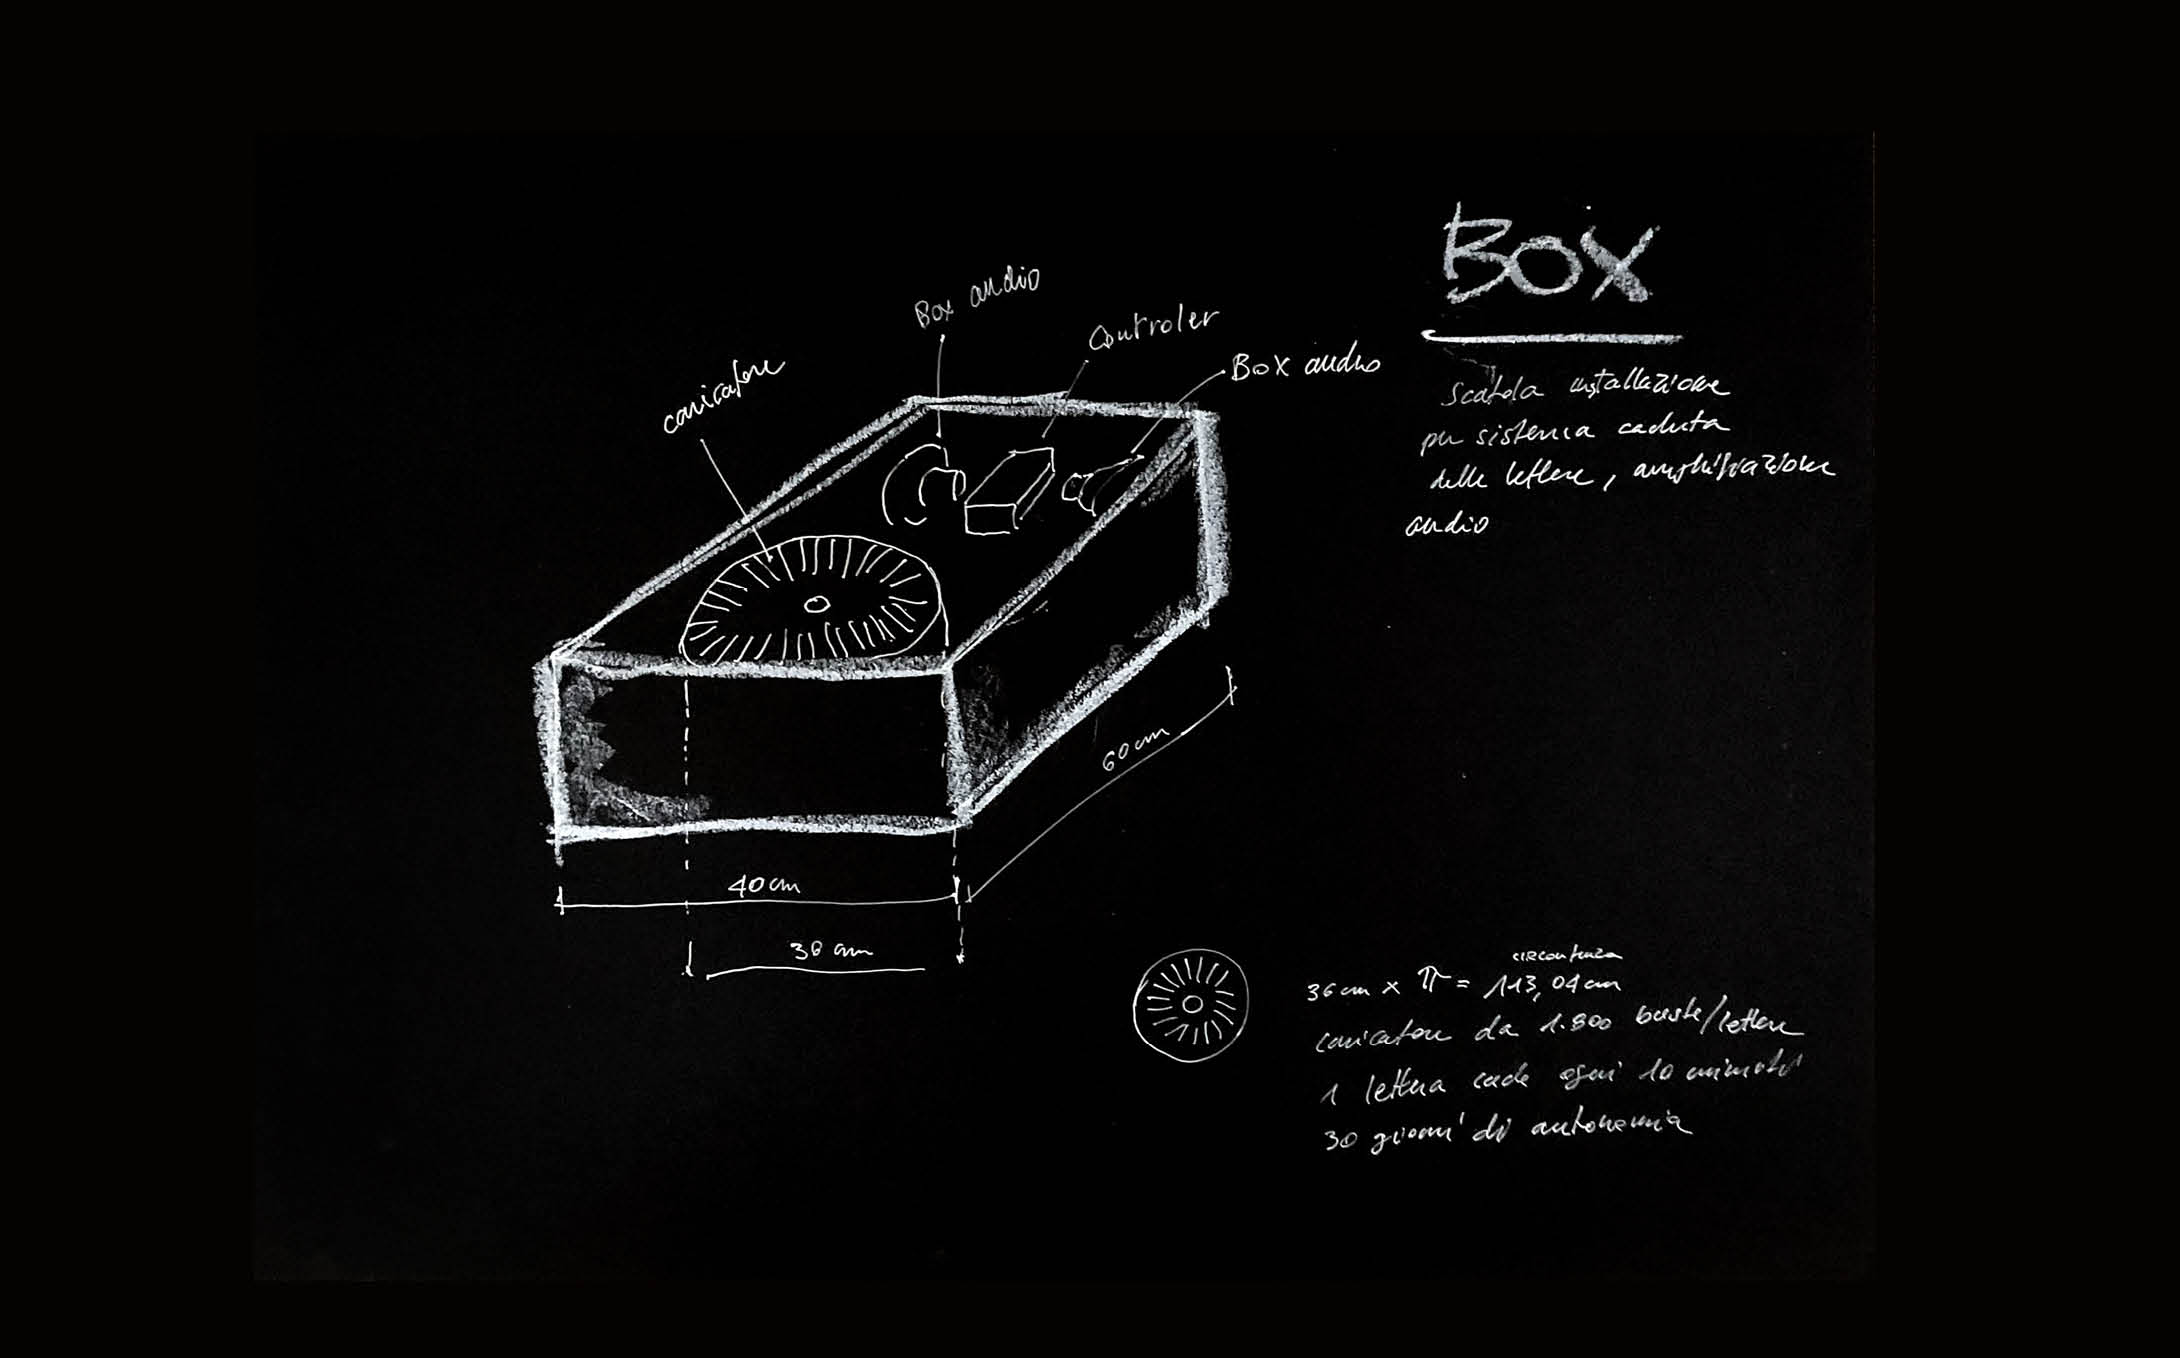 BOX
Scatola installazione
per sistema caduta
delle lettere, amplificazione
audio
Box audio
Controler
Box audio
caricatore
60cm
40cm
36 cm
circonferenza
36cm x π = 113,04cm
caricatore da 1.800 buste/lettere
1 lettera cade ogni 10 minuti
30 giorni di autonomia